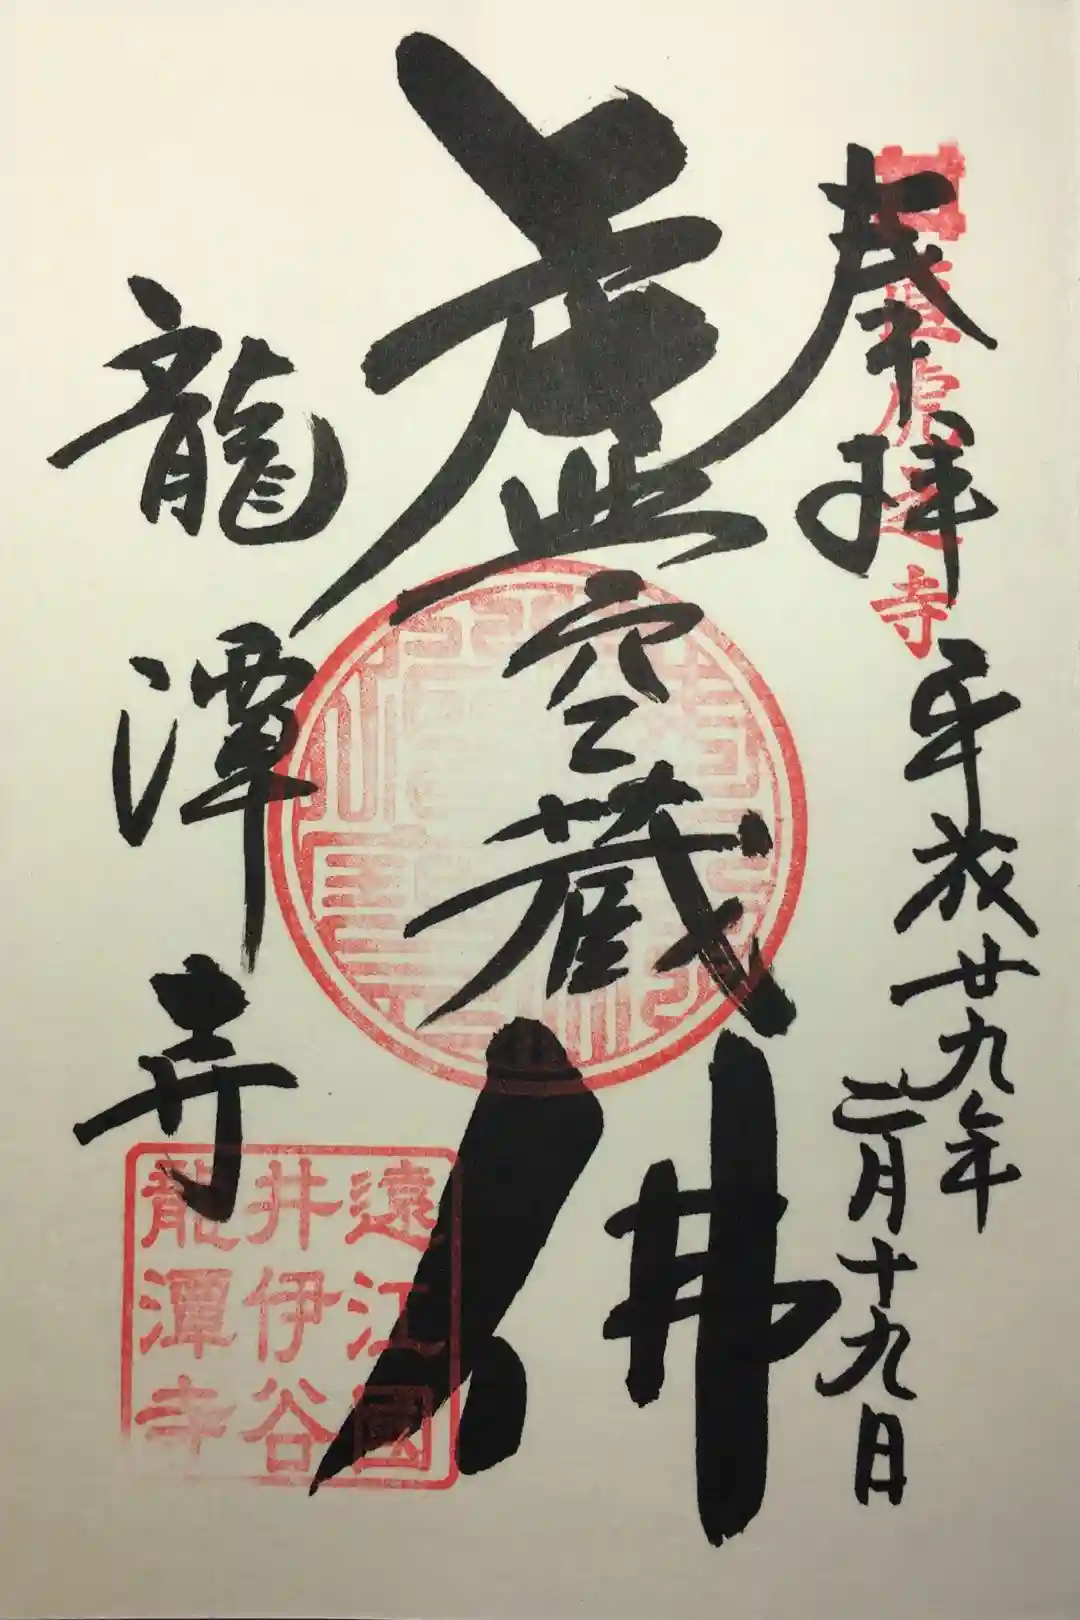 奉拝
平成廿九年
二月十九日
直虎之寺
虚空蔵佛
龍潭寺
遠江國
井伊谷
龍潭寺